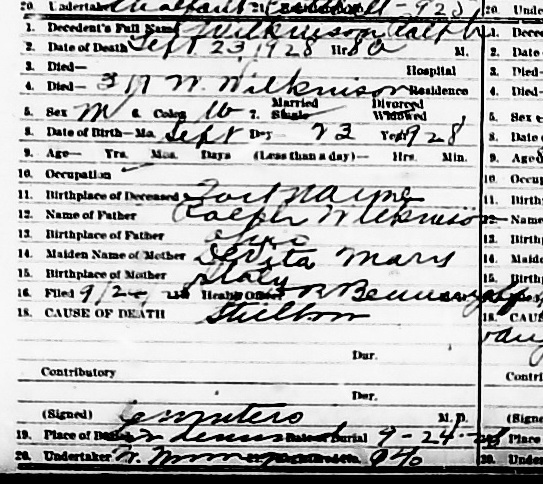 20. Undertaker 21. 925 20. Unde
1. Decedent's Full Name Wilkinson Ralph 1. Dece
2. Date of Death Sept 23 1928 Hr 8 M. 2. Date
3. Died— Hospital 3. Died—
4. Died— W. Wilkinson Residence 4. Died—
5. Sex M 6. Color W 7. Married Single Divorced Widowed 5. Sex
8. Date of Birth—Mo. Sept Day— 23 Year 1928 8. Date
9. Age— Yrs. Mos. Days (Less than a day)— Hrs. Min. 9. Age
10. Occupation 10. Occup
11. Birthplace of Deceased Fort Wayne 11. Birth
12. Name of Father Ralph Wilkinson 12. Name
13. Birthplace of Father Ohio 13. Birth
14. Maiden Name of Mother DeVita Mary 14. Maide
15. Birthplace of Mother Italy 15. Birth
16. Filed 9/2 Health Officer
18. CAUSE OF DEATH Stillborn 18. CAUS
Dur.
Contributory Contri
Dur.
(Signed) M. D. (Signe
19. Place of Burial Date of Burial 9-24-28 19. Place
20. Undertaker 940 20. Under